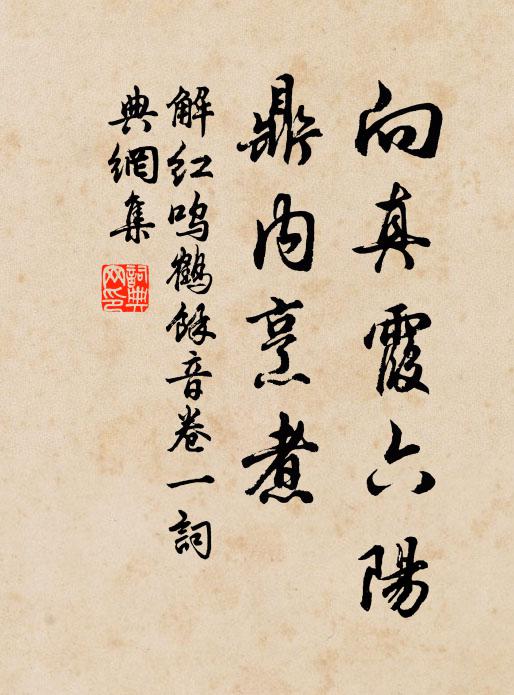 向真霞六陽
鼎内烹煮
解红鸣鶴餘音卷一詞
典網集
詞典
网印